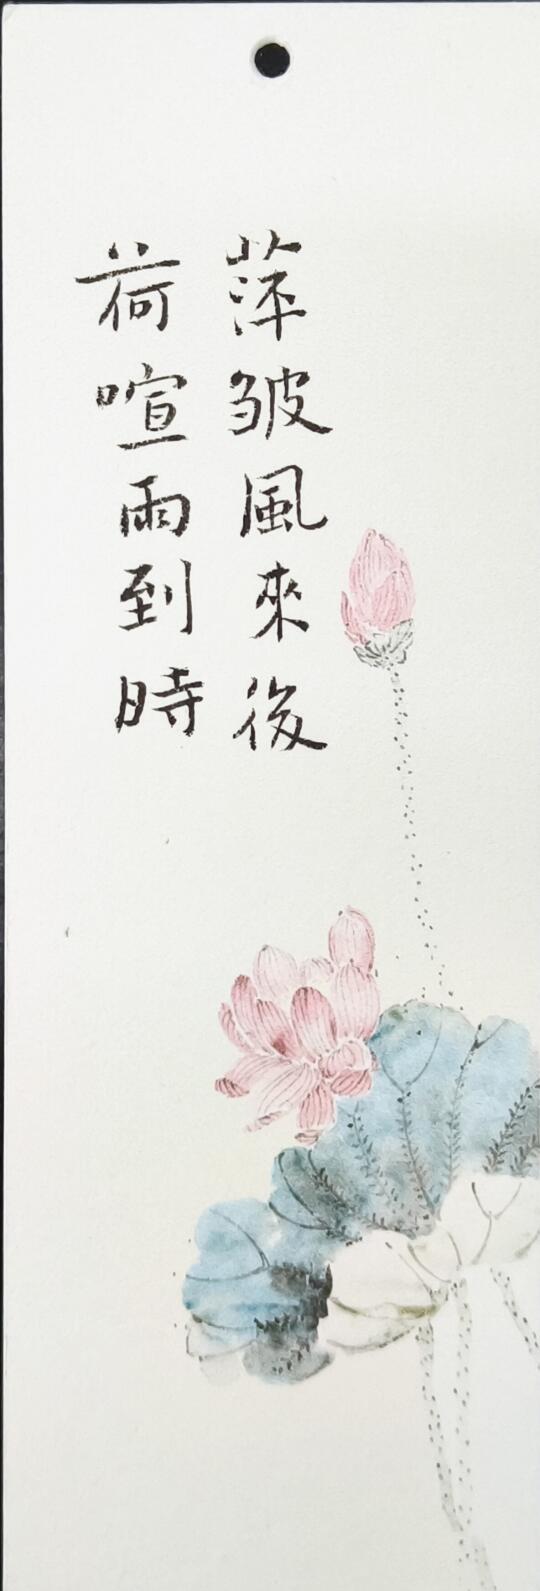 萍皱風來後
荷喧雨到時